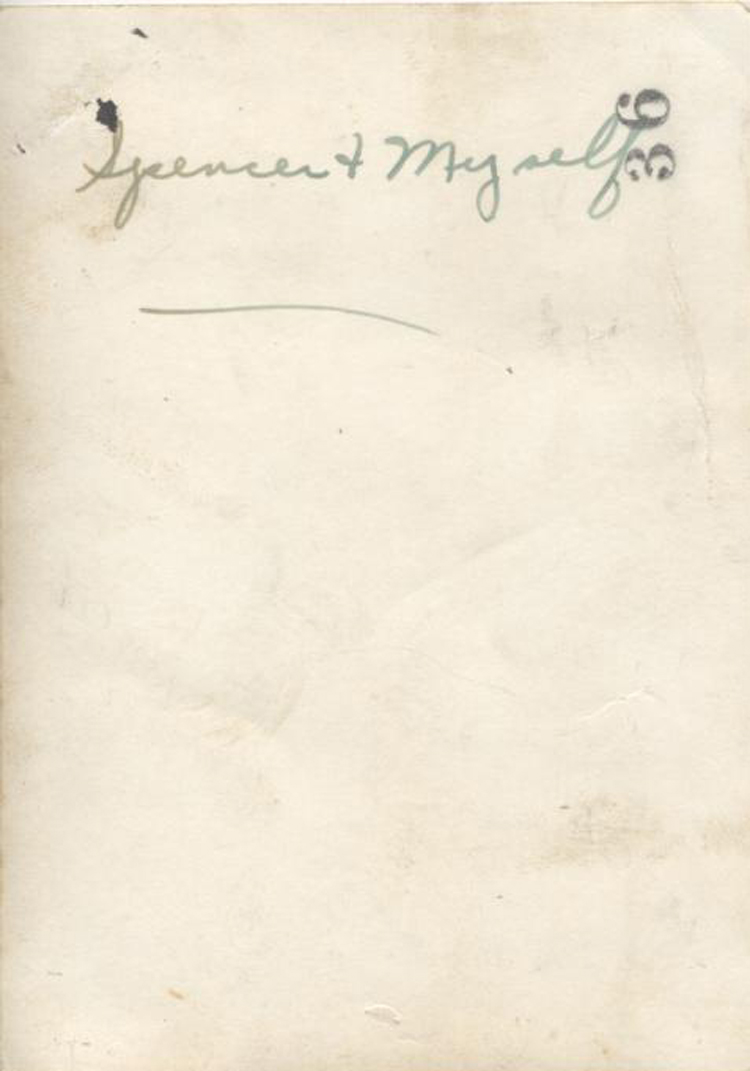 Spencer & Myself
36